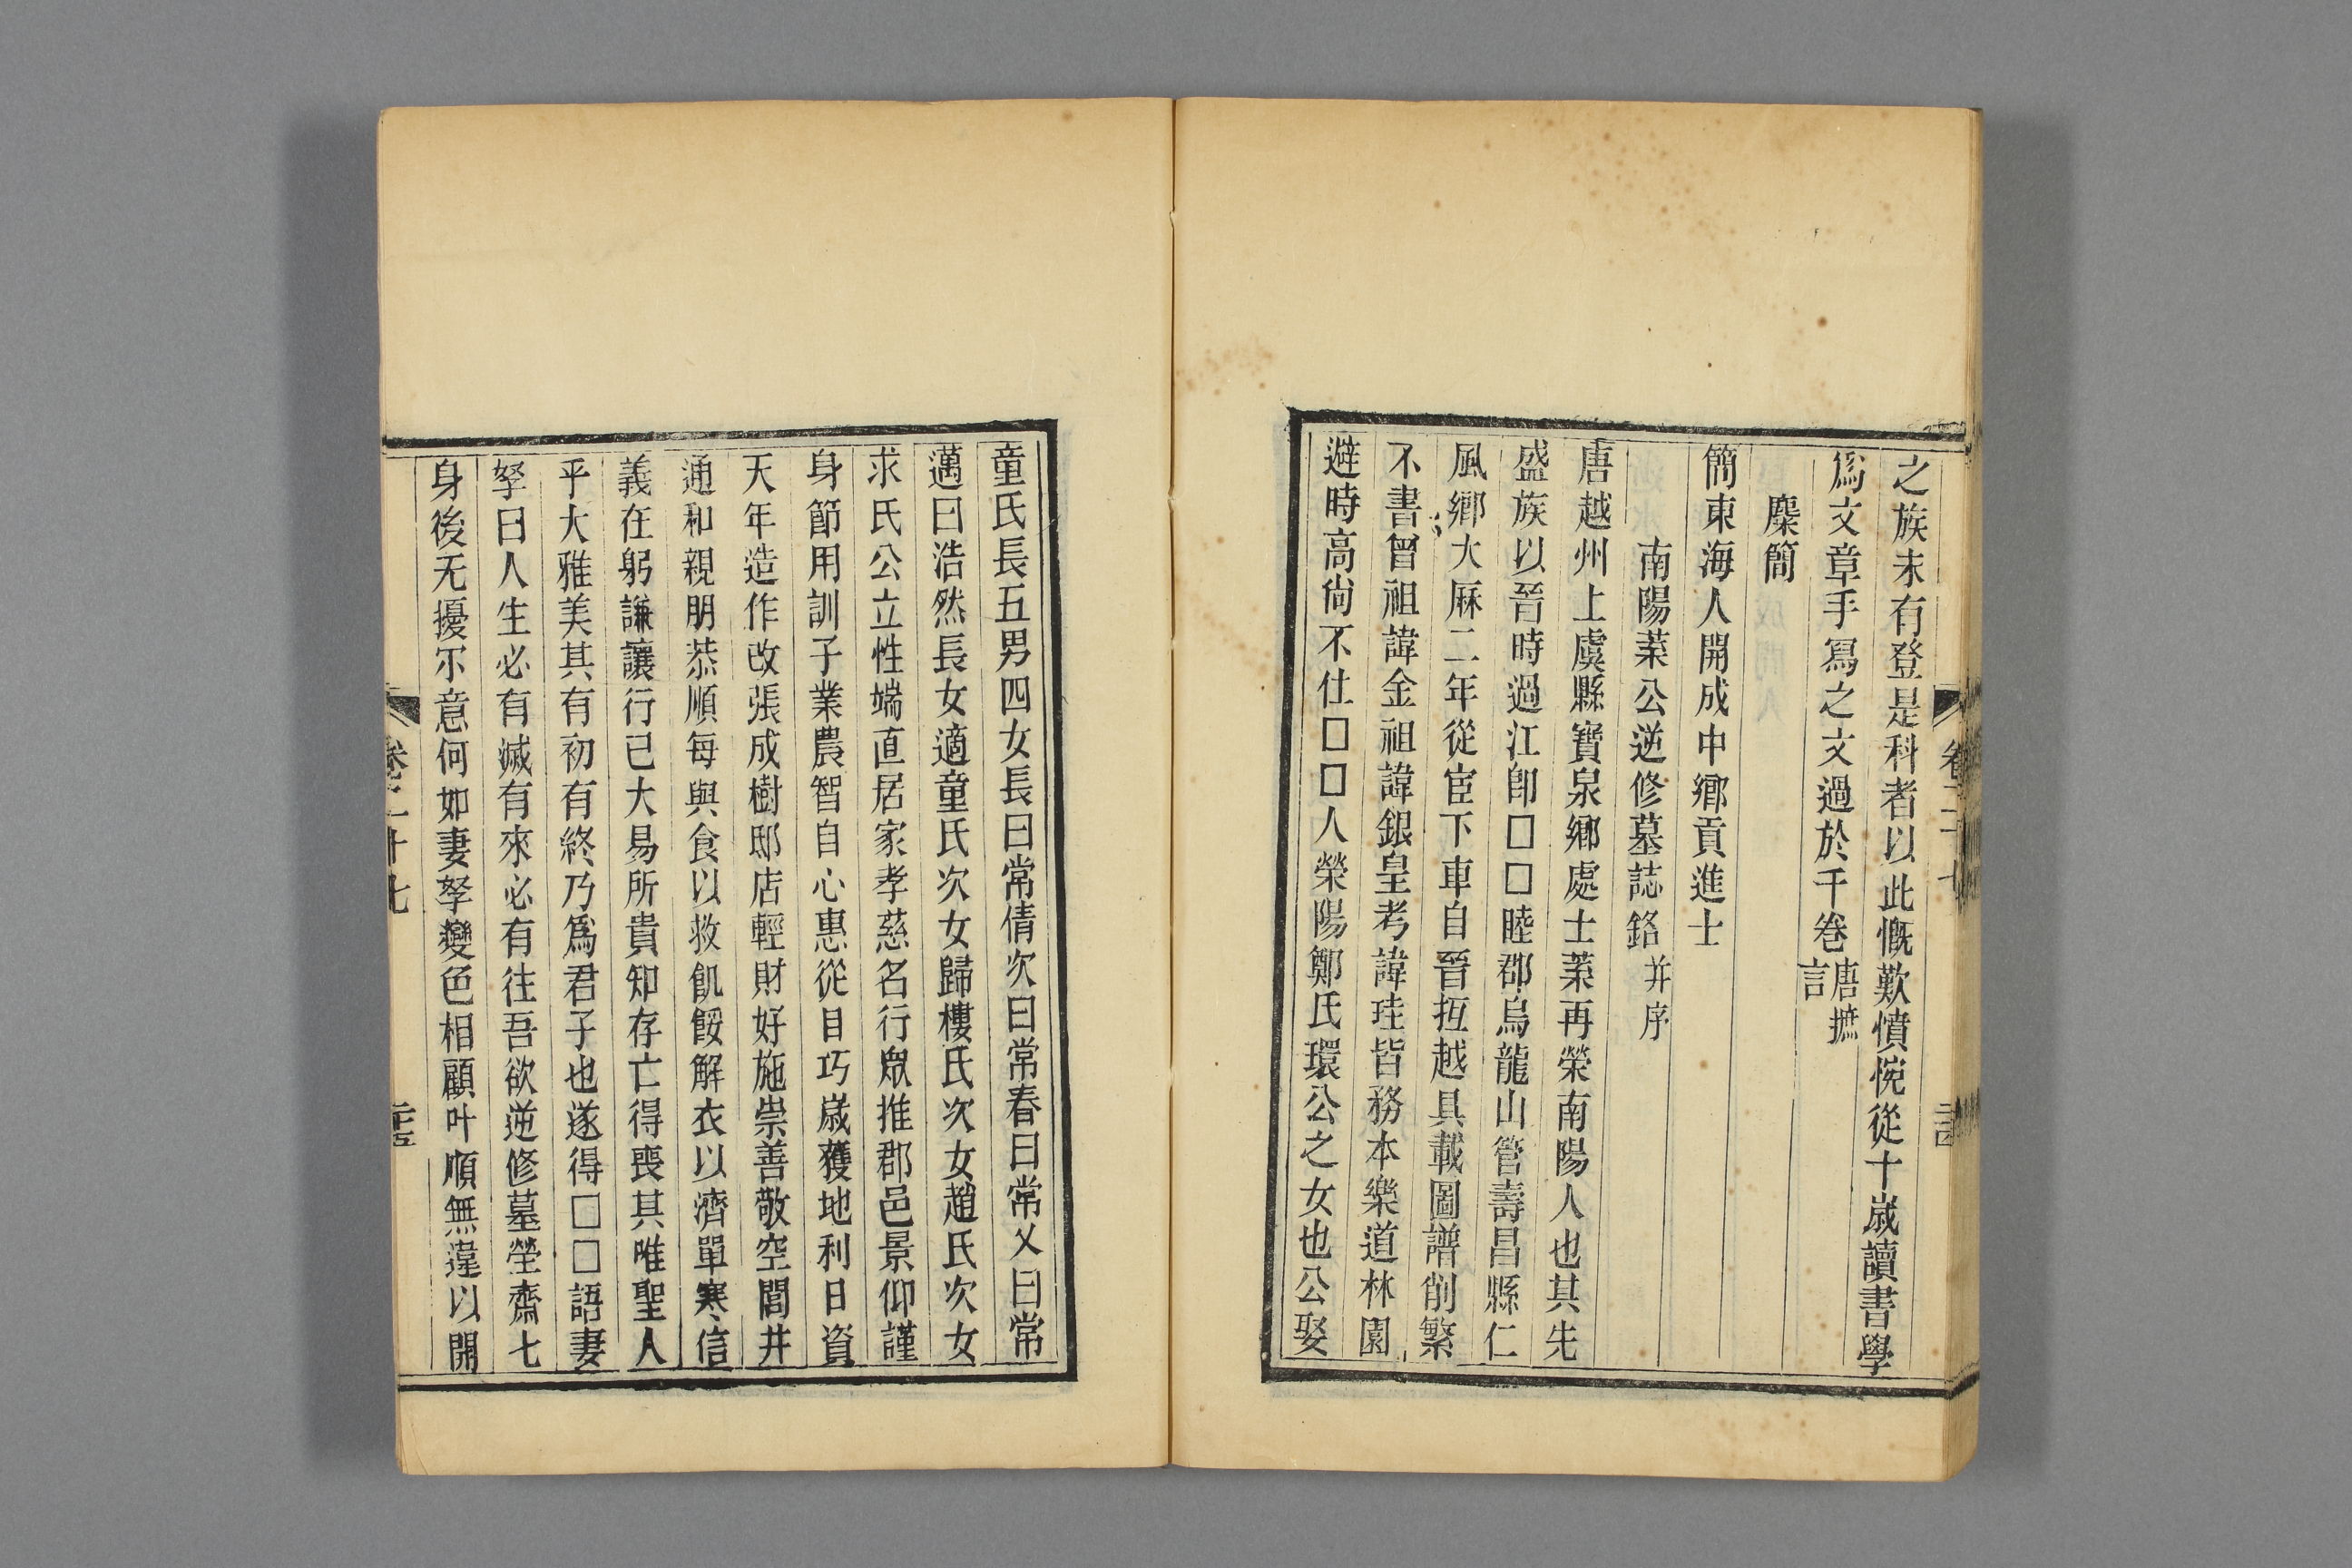 之族未有登是科者以此慨歎憤惋從十歲讀書學
爲文章手寫之文過於千卷唐摭言
麋簡
簡東海人開成中鄉貢進士
南陽葉公逆修墓誌銘并序
唐越州上虞縣寶泉鄉處士葉再榮南陽人也其先
盛族以晉時過江卽□□睦郡烏龍山管壽昌縣仁
風鄉大厤二年從宦下車自晉抂越具載圖譜削繁
不書曾祖諱金祖諱銀皇考諱珪皆務本樂道林園
避時高尙不仕□□人榮陽鄭氏環公之女也公娶
童氏長五男四女長曰常倩次曰常春曰常乂曰常
邁曰浩然長女適童氏次女歸樓氏次女趙氏次女
求氏公立性端直居家孝慈名行眾推郡邑景仰謹
身節用訓子業農智自心惠從目巧歲穫地利日資
天年造作改張成樹邸店輕財好施崇善敬空閭井
通和親朋恭順每與食以救飢餒解衣以濟單寒信
義在躬謙讓行己大易所貴知存亡得喪其唯聖人
乎大雅美其有初有終乃爲君子也遂得□□語妻
孥曰人生必有滅有來必有往吾欲逆修墓塋齋七
身後无擾尔意何如妻孥變色相顧叶順無違以開
卷二十七
二十五